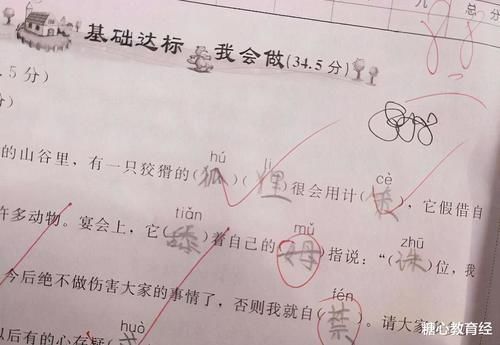 九 总分
98
基础达标 我会做(34.5分)
.5分)
分)
hú li cè
的山谷里，有一只狡猾的(狐)(狸)很会用计(策)，它假借自
tiǎn mǔ zhū
许多动物。宴会上，它(舔)着自己的(母)指说：“(诛)位，我
fén
今后绝不做伤害大家的事情了，否则我就自(禁)。请大家
huò
以后有的心存疑(
糖心教育经